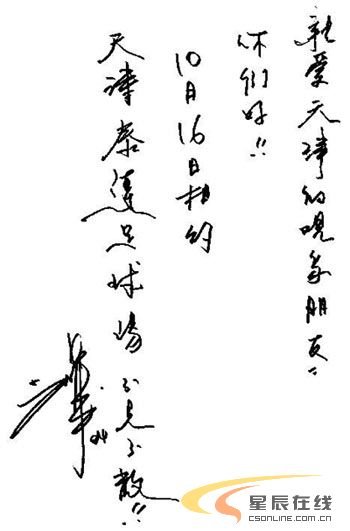 亲爱天津的观众朋友:
你们好!!
10月16日相约
天津泰達足球場不见不散!!
04
星辰在线
csonline.com.cn